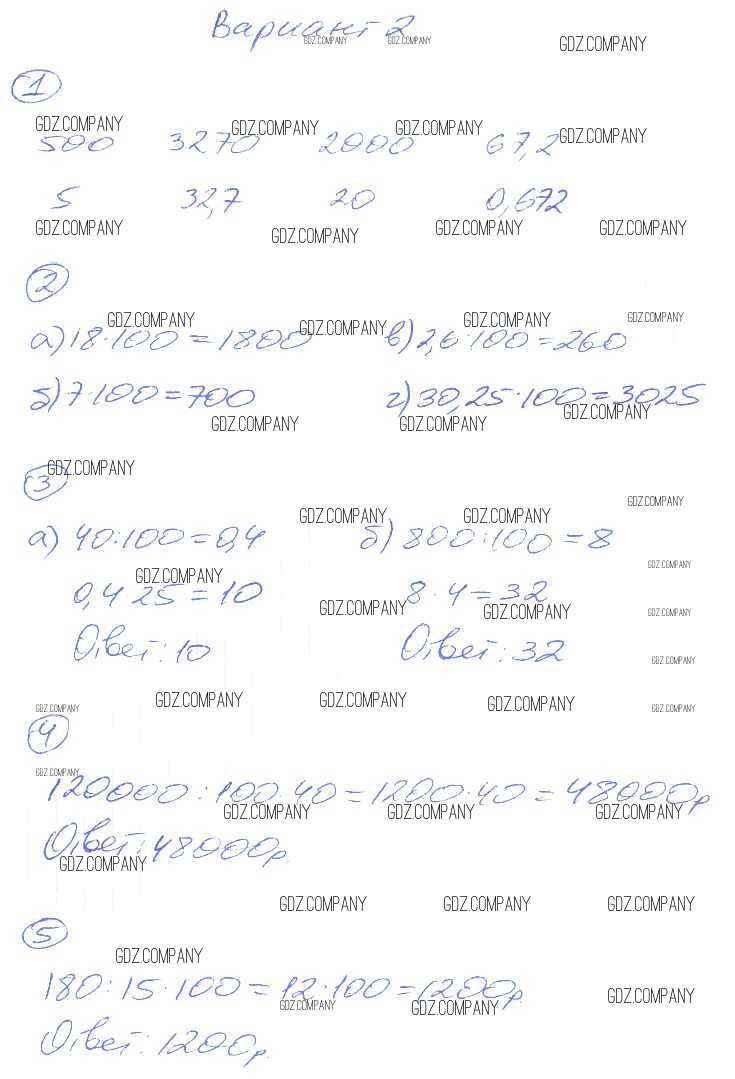 Вариант 2
GDZ.COMPANY GDZ.COMPANY GDZ.COMPANY
1
GDZ.COMPANY GDZ.COMPANY GDZ.COMPANY GDZ.COMPANY
500 3270 2000 67,2
5 32,7 20 0,672
GDZ.COMPANY GDZ.COMPANY GDZ.COMPANY GDZ.COMPANY
2
GDZ.COMPANY GDZ.COMPANY GDZ.COMPANY GDZ.COMPANY
а) 18·100=1800 в) 2,6·100=260
б) 7·100=700 г) 30,25·100=3025
GDZ.COMPANY GDZ.COMPANY GDZ.COMPANY
GDZ.COMPANY
3
GDZ.COMPANY GDZ.COMPANY GDZ.COMPANY
а) 40:100=0,4 б) 800:100=8
GDZ.COMPANY GDZ.COMPANY
0,4 25=10 8·4=32
GDZ.COMPANY GDZ.COMPANY GDZ.COMPANY
Ответ: 10 Ответ: 32
GDZ.COMPANY
GDZ.COMPANY GDZ.COMPANY GDZ.COMPANY GDZ.COMPANY GDZ.COMPANY
4
GDZ.COMPANY
120000:100·40=1200·40=48000р
GDZ.COMPANY GDZ.COMPANY GDZ.COMPANY
Ответ: 48000р.
GDZ.COMPANY
GDZ.COMPANY GDZ.COMPANY GDZ.COMPANY
5
GDZ.COMPANY
180:15·100=12·100=1200р.
GDZ.COMPANY GDZ.COMPANY GDZ.COMPANY
Ответ: 1200р.